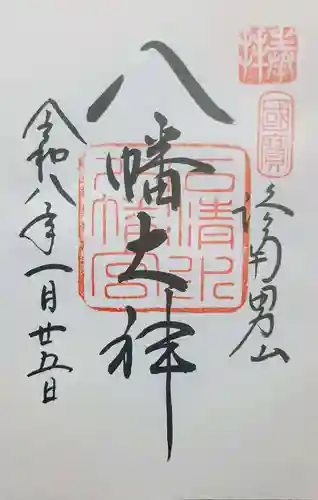 奉拝
國寶
洛南男山
八幡大神
石清水
八幡宮
令和八年一月廿五日